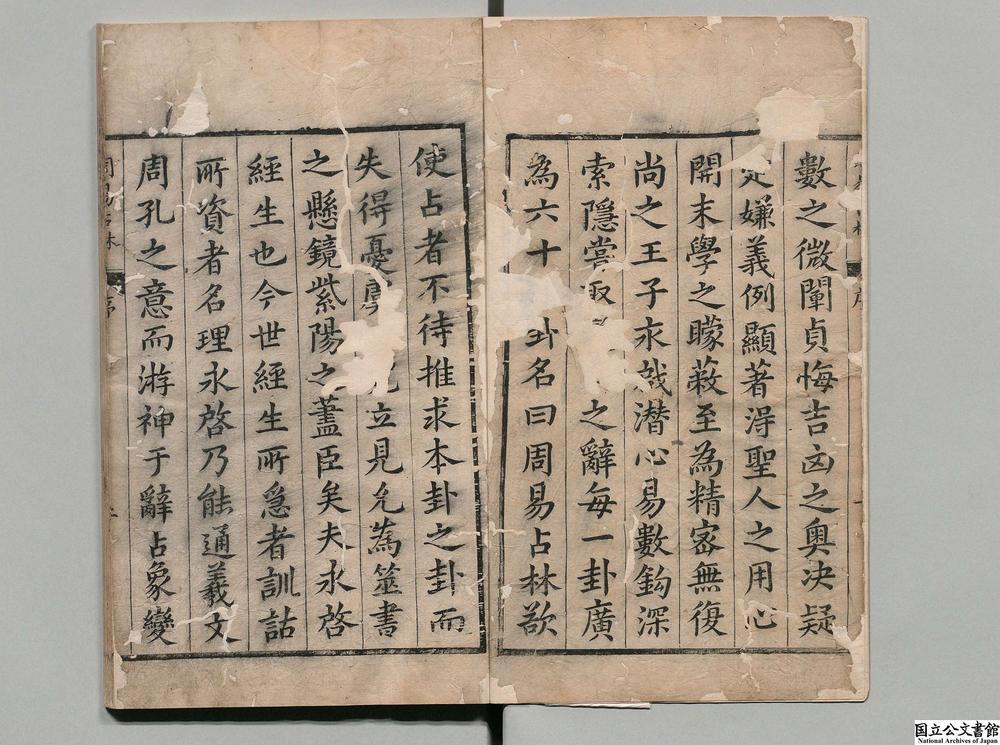 數之微闡貞悔吉凶之奥决疑
定嫌義例顯著淂聖人之用心
開末學之矇蔽至為精宻無復
尚之王子永啓潜心易數鈎深
索隱嘗取之辭每一卦廣
為六十卦名曰周易占林欲
使占者不待推求本卦之卦而
失得憂虞立見允為筮書
之懸鏡紫陽之藎臣矣夫永啓
經生也今世經生所急者訓詁
所資者名理永啓乃能通羲文
周孔之意而游神于辭占象變
周易占林
序
國立公文書館
National Archives of Japan